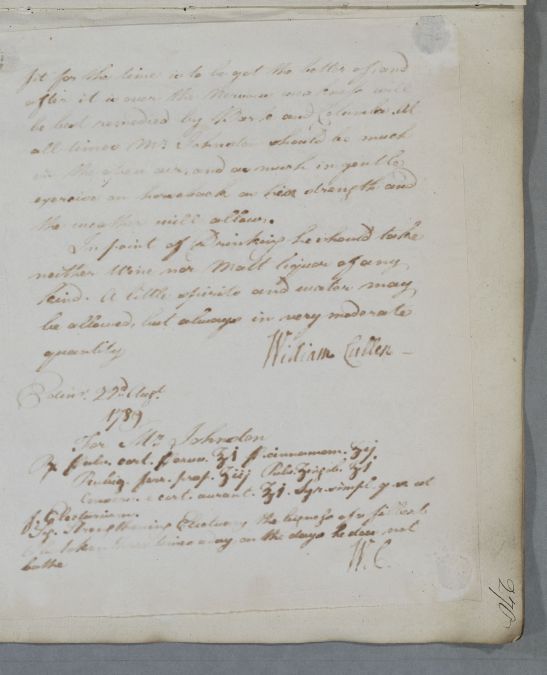 fit for the time is to be got the better of, and
after it is over the Nervous weakness will
be best remedied by Bark and Columba. At
all times Mr Johnston should be much
in the open air, and as much in gentle
exercise on horseback as his strength and
the weather will allow.
In point of Drinking he should take
neither Wine nor Malt liquor of any
kind. A little spirits and water may
be allowed, but always in very moderate
quantity
William Cullen
Edinr. 22d Augt.
1789
For Mr Johnston
℞ Pulv. cort. Peruv. ℥i P. cinnamom. ʒij
Rubig. ferr. prep. ʒiij Pulv. Zingib. ʒi
Conserv. e cort. aurant. ℥i. Syr. simpl. q.s. ut
f. Electarium.
Sig. Strengthening Electuary the bigness of a filbert
to be taken times a day on the days he does not
bathe
W. C.
246